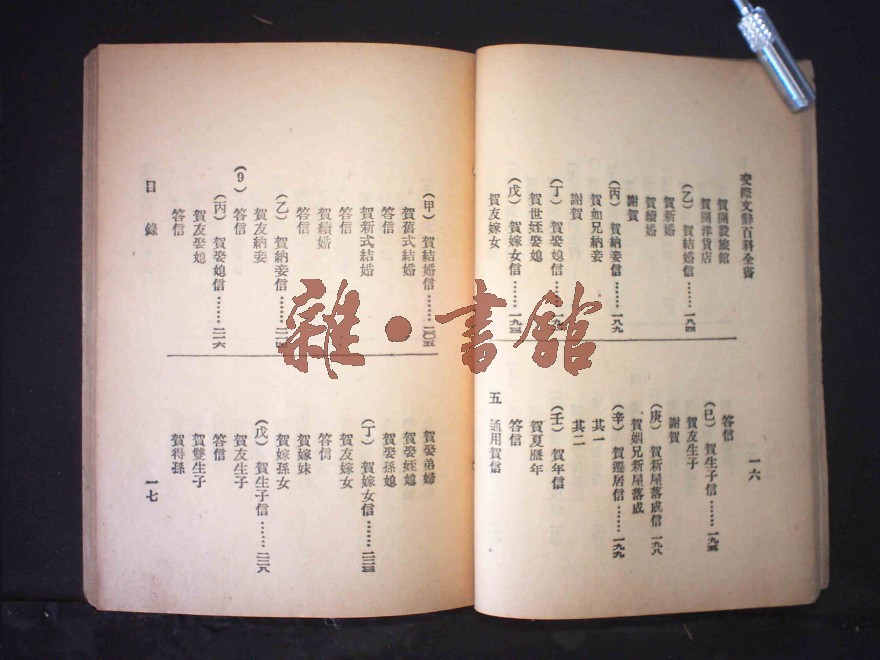 交際文辭百科全書
賀開設旅館
賀開洋貨店
(乙) 賀結婚信……一九四
賀新婚
賀續婚
謝賀
(丙) 賀納妾信……一八九
賀如兄納妾
謝賀
(丁) 賀娶媳信
賀世姪娶媳
(戊) 賀嫁女信……一九三
賀友嫁女
一六
答信
(己) 賀生子信……一九五
賀友生子
謝賀
(庚) 賀新屋落成信 一九八
賀姻兄新屋落成
(辛) 賀遷居信……一九九
其一
其二
(壬) 賀年信
賀夏曆年
答信
五 通用賀信
(甲) 賀結婚信……二〇五
賀舊式結婚
答信
賀新式結婚
答信
賀續婚
答信
(乙) 賀納妾信……二一四
賀友納妾
答信
(9)
(丙) 賀娶媳信……二一六
賀友娶媳
答信
目錄
賀娶弟婦
賀娶姪媳
賀娶孫媳
(丁) 賀嫁女信……二二四
賀友嫁女
答信
賀嫁妹
賀嫁孫女
(戊) 賀生子信……二二八
賀友生子
答信
賀雙生子
賀得孫
一七
雜·書館